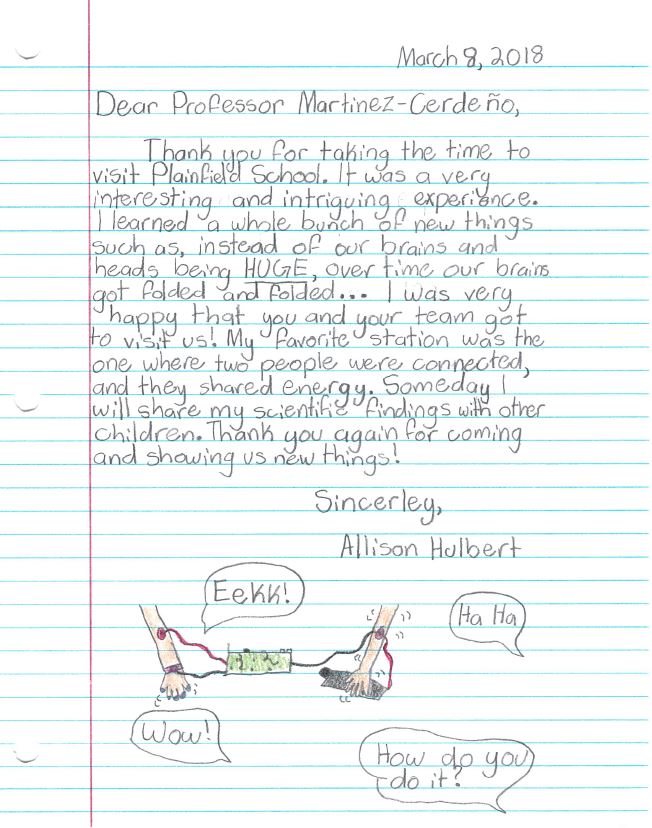 March 8, 2018
Dear Professor Martinez-Cerdeño,
Thank you for taking the time to
visit Plainfield School. It was a very
interesting and intriguing experience.
I learned a whole bunch of new things
such as, instead of our brains and
heads being HUGE, over time our brains
got folded and folded... I was very
happy that you and your team got
to visit us! My favorite station was the
one where two people were connected,
and they shared energy. Someday I
will share my scientific findings with other
children. Thank you again for coming
and showing us new things!
Sincerley,
Allison Hulbert
Eekk!
Ha Ha
Wow!
How do you
do it?